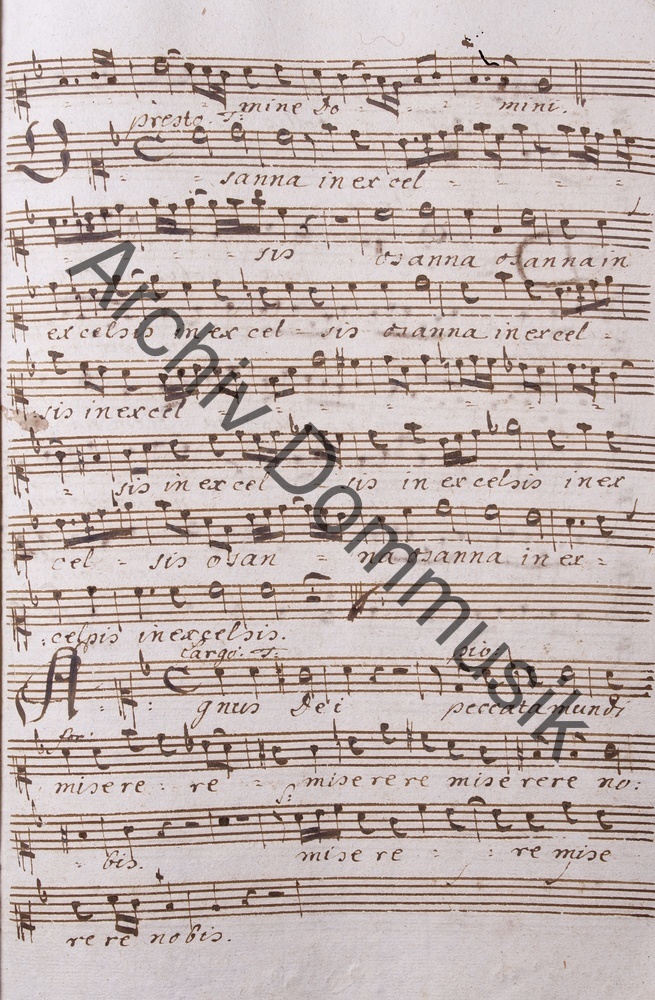 mine Do mini.
presto. F:
O sanna in excel
sis osanna osanna in
excelsis in excel sis osanna in excel
sis in excel
sis in excel sis in excelsis in ex
cel sis osan na osanna in ex
celsis in excelsis.
Largo. F: pio:
Agnus Dei peccata mundi
for:
misere re miserere miserere no:
bis. f: misere re mise
rere nobis.
Archiv Dommusik